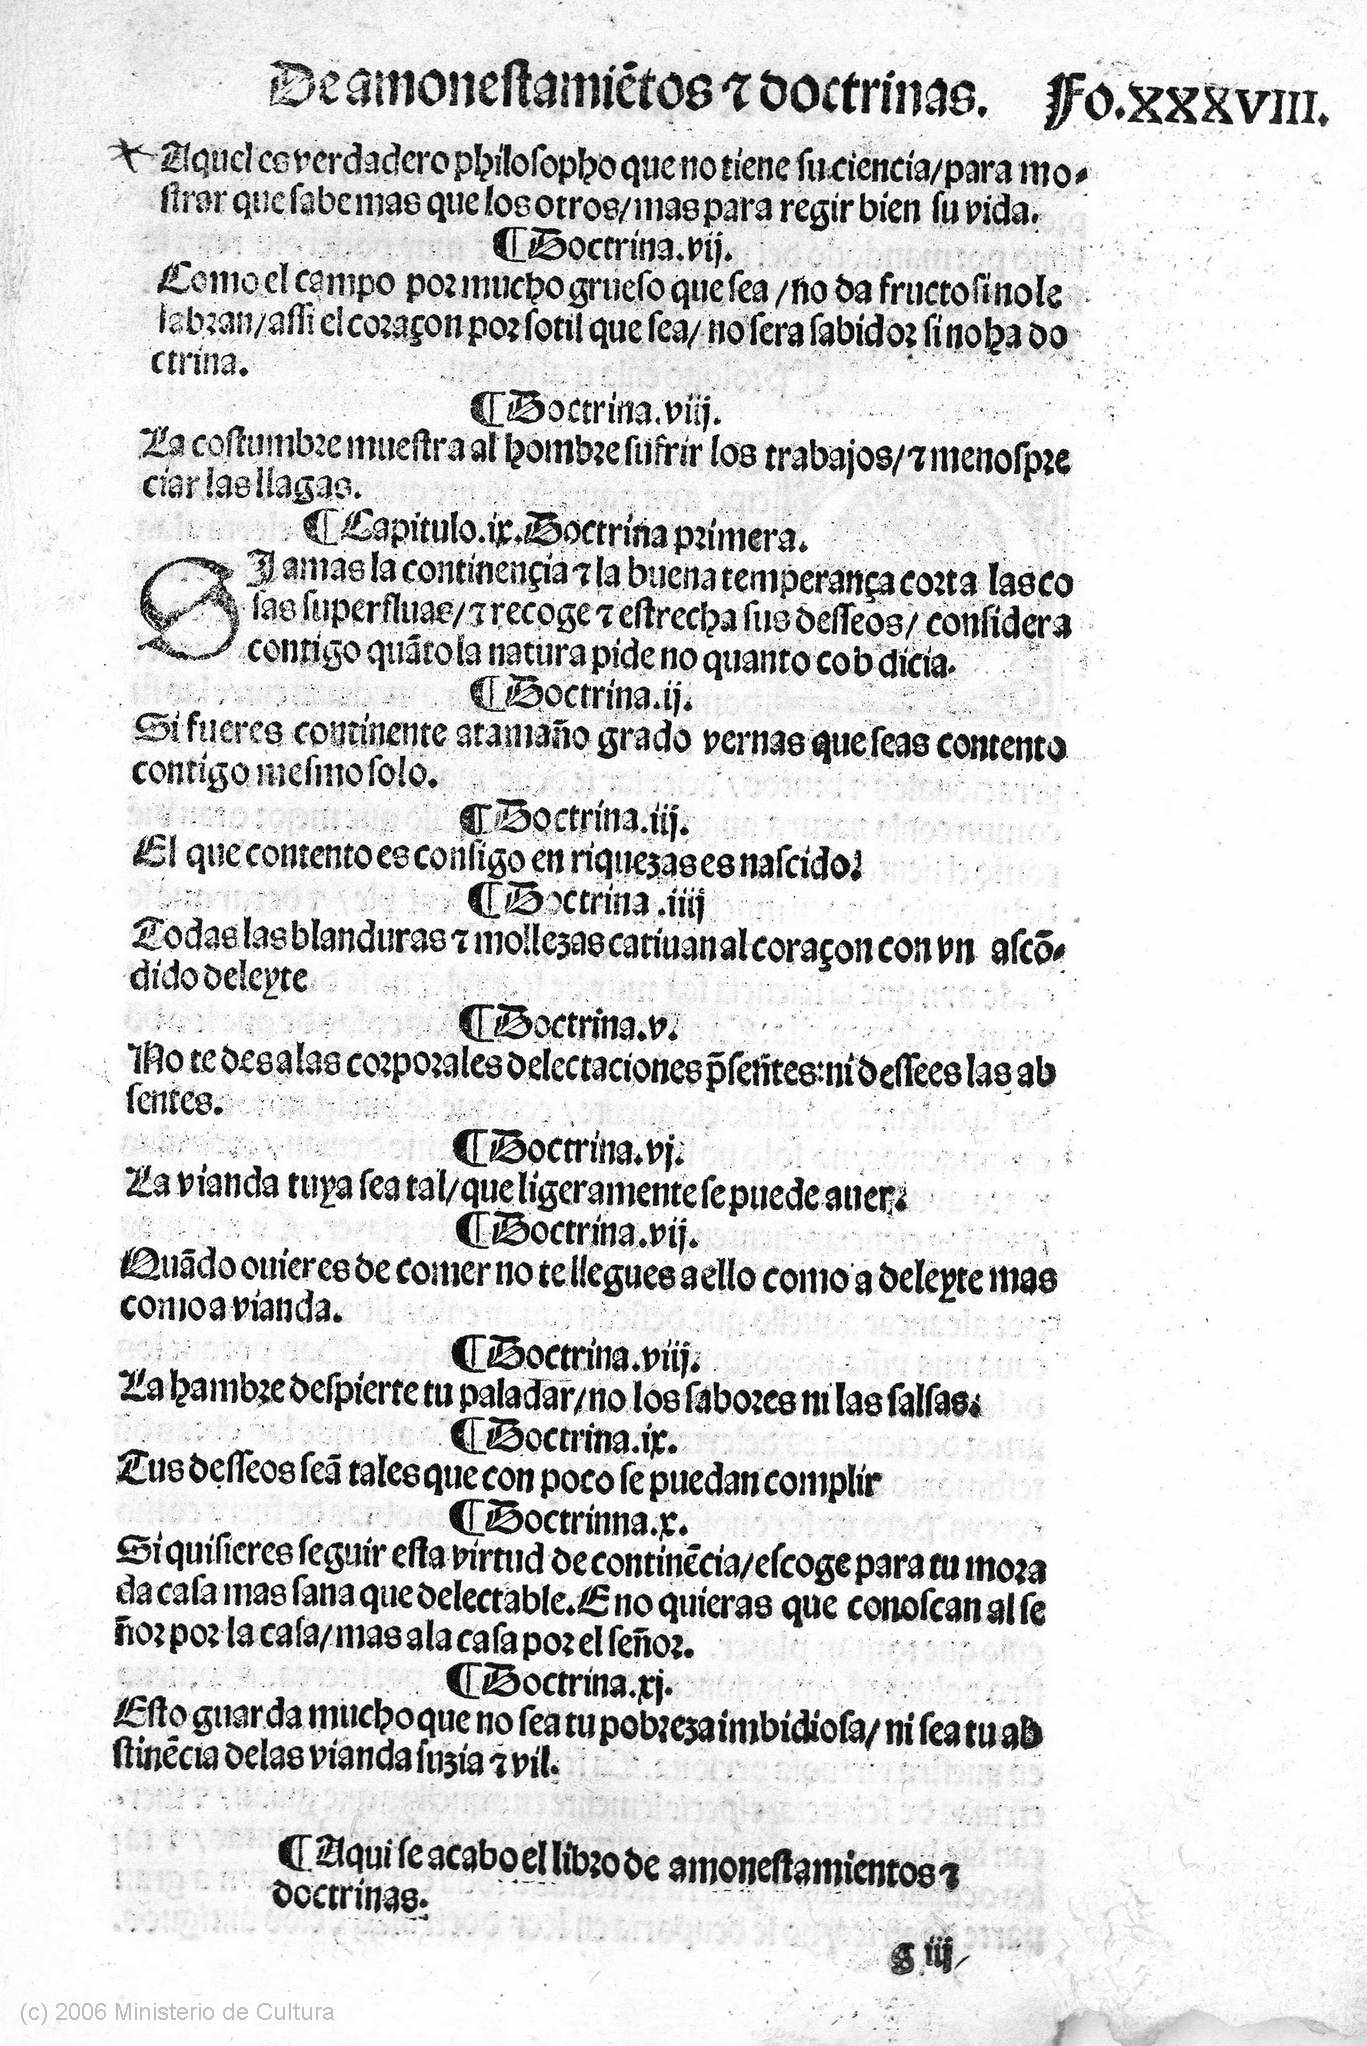 De amonestamiẽtos ⁊ doctrinas. Fo.XXXVIII.
Aquel es verdadero philosopho que no tiene su ciencia/para mo-
strar que sabe mas que los otros/mas para regir bien su vida.
¶ Doctrina.vij.
Como el campo por mucho grueso que sea /no da fructo si no le
labran/assi el coraçon por sotil que sea/ no sera sabidor si no ha do
ctrina.
¶ Doctrina.viij.
La costumbre muestra al hombre sufrir los trabajos/⁊ menospre
ciar las llagas.
¶ Capitulo.ix.Doctrina primera.
SI amas la continençia ⁊ la buena temperança corta las co
sas superfluas/⁊ recoge ⁊ estrecha sus desseos/ considera
contigo quãto la natura pide no quanto cobdicia.
¶ Doctrina.ij.
Si fueres continente atamaño grado vernas que seas contento
contigo mesmo solo.
¶ Doctrina.iij.
El que contento es consigo en riquezas es nascido.
¶ Doctrina .iiij
Todas las blanduras ⁊ mollezas catiuan al coraçon con vn ascõ-
dido deleyte
¶ Doctrina.v.
No te des a las corporales delectaciones p̃sentes:ni dessees las ab
sentes.
¶ Doctrina.vj.
La vianda tuya sea tal/que ligeramente se puede auer.
¶ Doctrina.vij.
Quãdo ouieres de comer no te llegues a ello como a deleyte mas
como a vianda.
¶ Doctrina.viij.
La hambre despierte tu paladar/no los sabores ni las salsas.
¶ Doctrina.ix.
Tus desseos seã tales que con poco se puedan complir
¶ Doctrinna.x.
Si quisieres seguir esta virtud de continẽcia/escoge para tu mora
da casa mas sana que delectable.E no quieras que conoscan al se
ñor por la casa/mas a la casa por el señor.
¶ Doctrina.xj.
Esto guarda mucho que no sea tu pobreza imbidiosa/ ni sea tu ab
stinẽcia delas vianda suzia ⁊ vil.
¶ Aqui se acabo el libro de amonestamientos ⁊
doctrinas.
g iij
(c) 2006 Ministerio de Cultura